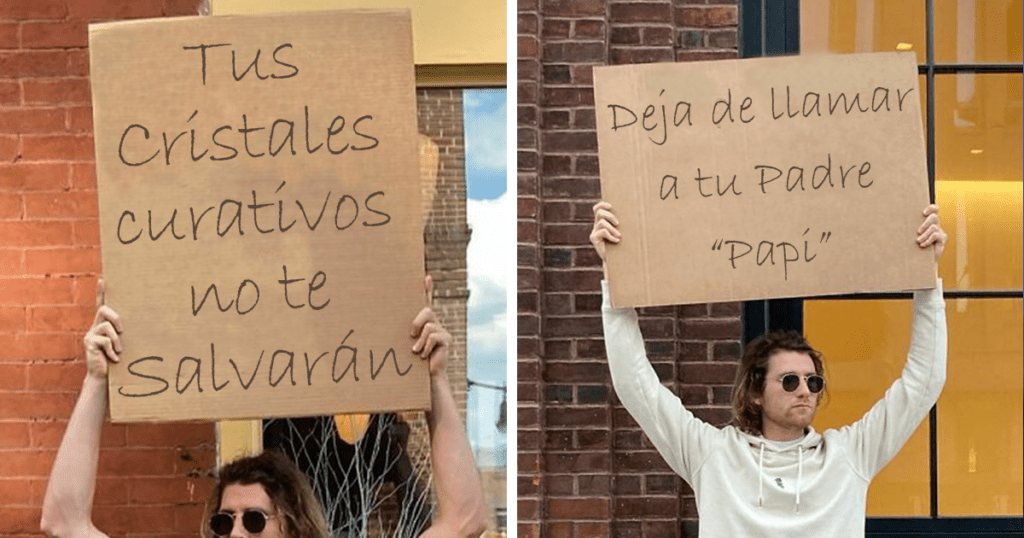 Tus
Cristales
curativos
no te
Salvarán
Deja de llamar
a tu Padre
"Papi"